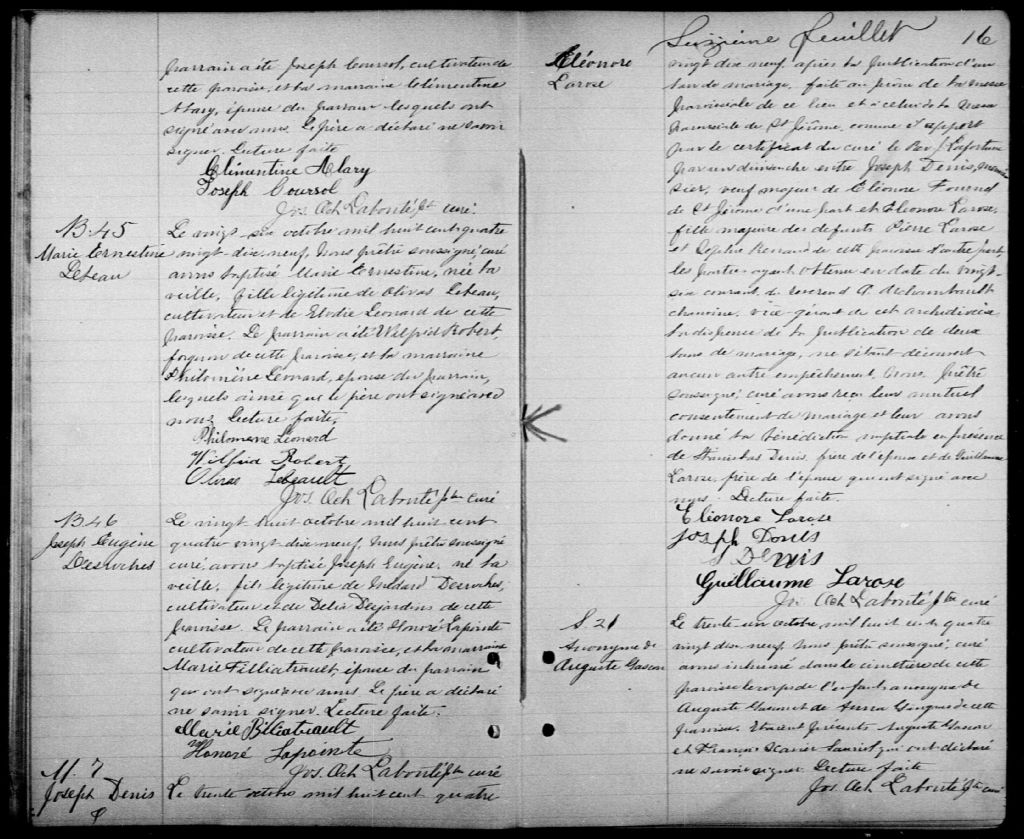 parrain a été Joseph Coursol, cultivateur de
cette paroisse, et la marraine Clémentine
Alary, épouse du parrain lesquels ont
signé avec nous. Le père a déclaré ne savoir
signer. Lecture faite
Clémentine Alary
Joseph Coursol
Jos. Ach Labonté ptr curé.
B. 45
Marie Ernestine
Lebeau
Le vingt six octobre mil huit cent quatre
vingt dix neuf, Nous prêtre soussigné, curé
avons baptisé Marie Ernestine, née la
veille, fille légitime de Olivas Lebeau,
cultivateur et de Elodie Leonard de cette
paroisse. Le parrain a été Wilfrid Robert,
forgeron de cette paroisse, et la marraine
Philomène Leonard, epouse du parrain,
lesquels ainsi que le père ont signé avec
nous. Lecture faite,
Philomene Léonard
Wilfrid Robert
Olivas
Jos. Ach Labonté ptr curé
B. 46
Joseph Eugène
Desroches
Le vingt huit octobre mil huit cent
quatre vingt dix neuf, Nous prêtre soussigné
curé, avons baptisé Joseph Eugène, né la
veille, fils légitime de Médard Desroches,
cultivateur et de Délia Desjardins de cette
paroisse. Le parrain a été Honoré Lapointe
cultivateur de cette paroisse, et la marraine
Marie Filliatrault, épouse du parrain
qui ont signé avec nous. Le père a déclaré
ne savoir signer. Lecture faite.
Marie
Honoré Lapointe
Jos. Ach Labonté ptr curé
M. 7
Joseph Denis
&
Le trente octobre mil huit cent quatre
Seizième feuillet 16
Eléonore
Larose
vingt dix neuf, après la publication d'un
ban de mariage, faite au prône de la messe
paroissiale de ce lieu et à celui de la messe
paroissiale de St Jérôme, comme il appert
par le certificat du curé le Rev. J. Lafortune
par un dimanche entre Joseph Denis,
veuf majeur de Eléonore Fournel
de St Jérôme d'une part et Eléonore Larose,
fille majeure des defunts Pierre Larose
et Sophie de cette paroisse d'autre part,
les parties ayant obtenu en date du vingt-
six courant du reverend A. Archambault
chanoine, vice-gérant de cet archidiocèse
la dispense de la publication de deux
bans de mariage, ne s'étant découvert
aucun autre empêchement, Nous, prêtre
soussigné, curé avons reçu leur mutuel
consentement de mariage et leur avons
donné la bénédiction nuptiale en présence
de Stanislas Denis, frère de l'époux et de Guillaume
Larose, frère de l'épouse qui ont signé avec
nous. Lecture faite.
Eléonore Larose
Joseph Denis
S Denis
Guillaume Larose
Jos. Ach Labonté ptr curé
S 21
Anonyme de
Auguste Gascon
Le trente un octobre mil huit cent quatre
vingt dix neuf, Nous prêtre soussigné, curé
avons inhumé dans le cimetière de cette
paroisse le corps de l'enfant anonyme de
Auguste Gascon et de de cette
paroisse. Etaient présents Auguste Gascon
et François Xavier qui ont déclaré
ne savoir signer. Lecture faite
Jos. Ach Labonté ptr curé